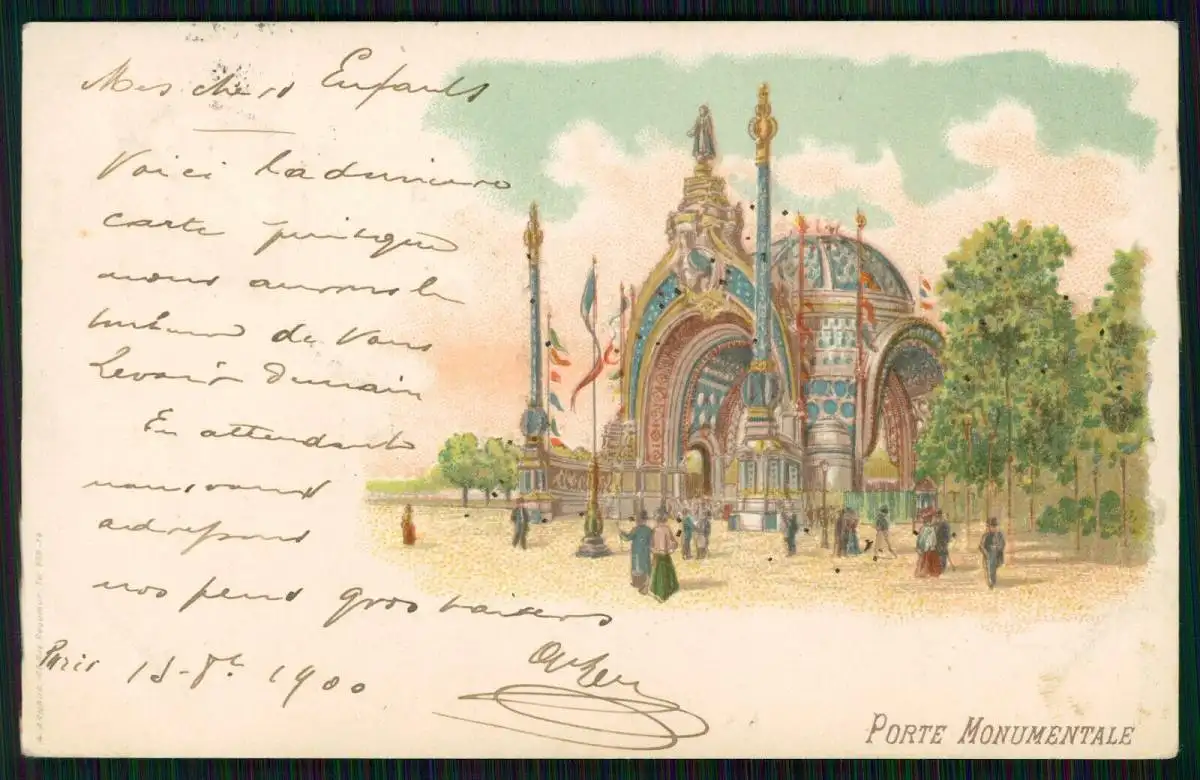 Mes chers Enfants
Voici la derniere
carte puisque
nous aurons le
bonheur de vous
revoir Demain
En attendant
nous vous
adressons
nos plus gros baisers
Paris 15-7bre 1900
PORTE MONUMENTALE